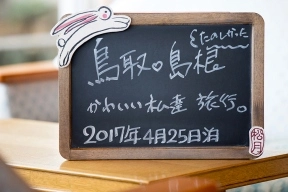 たのしかった
鳥取。島根
かわいい私達 旅行。
2017年4月25日泊
松月